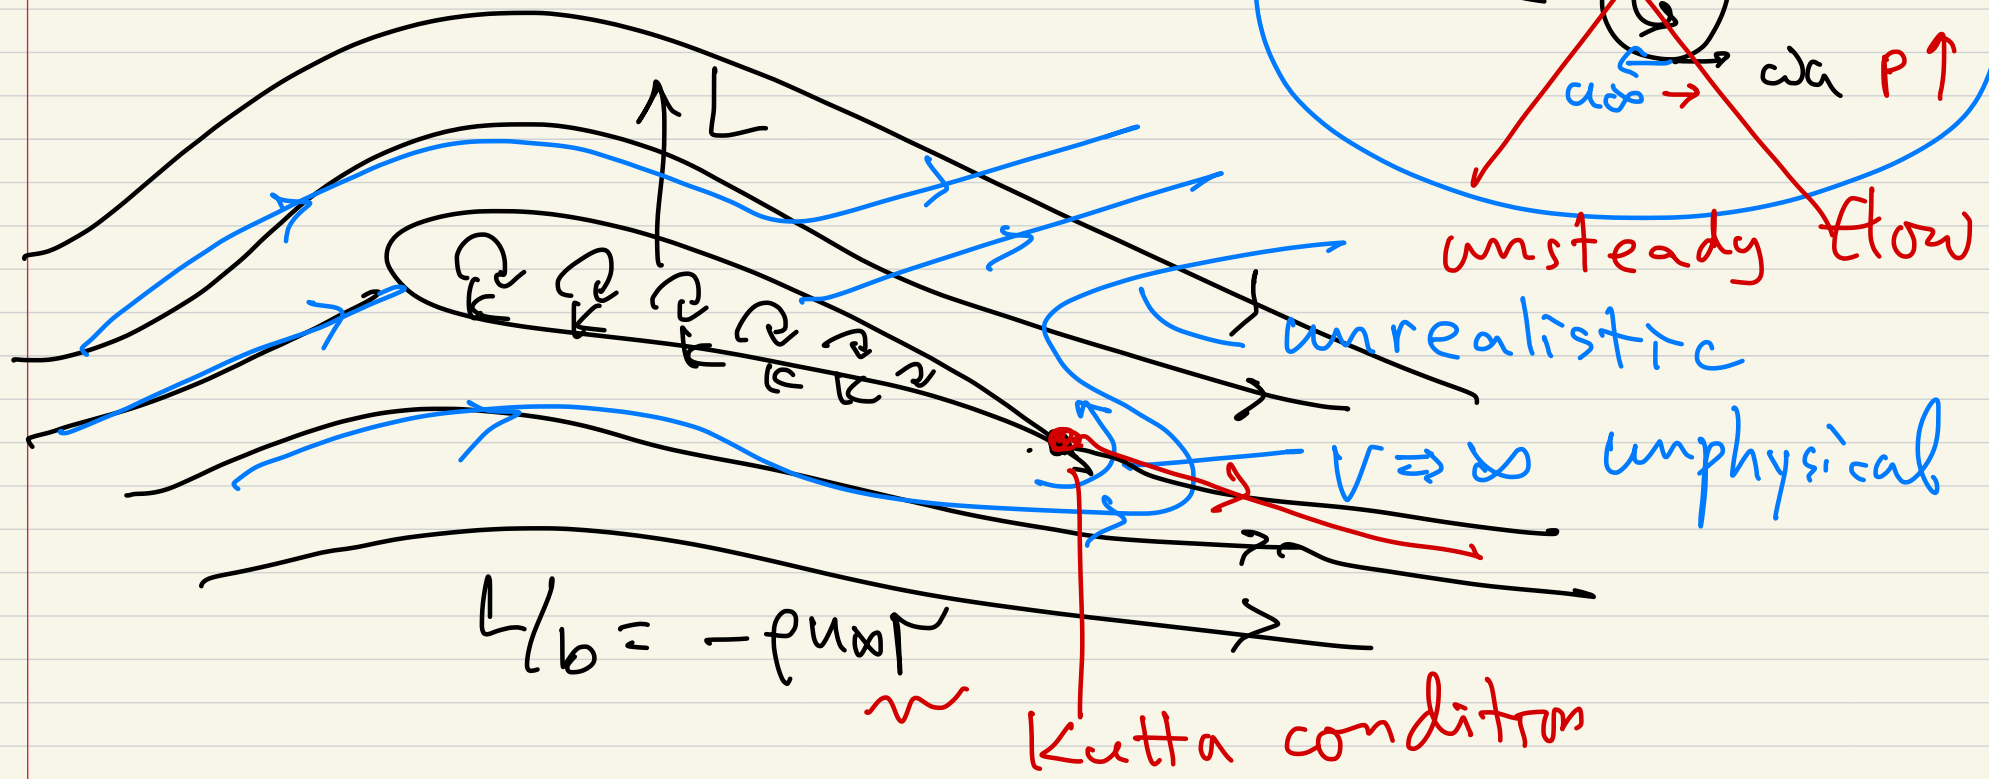 ωa P↑
u∞ →
L
unsteady flow
unrealistic
V⇒∞ unphysical
L/b = -ρu∞Γ
Kutta condition